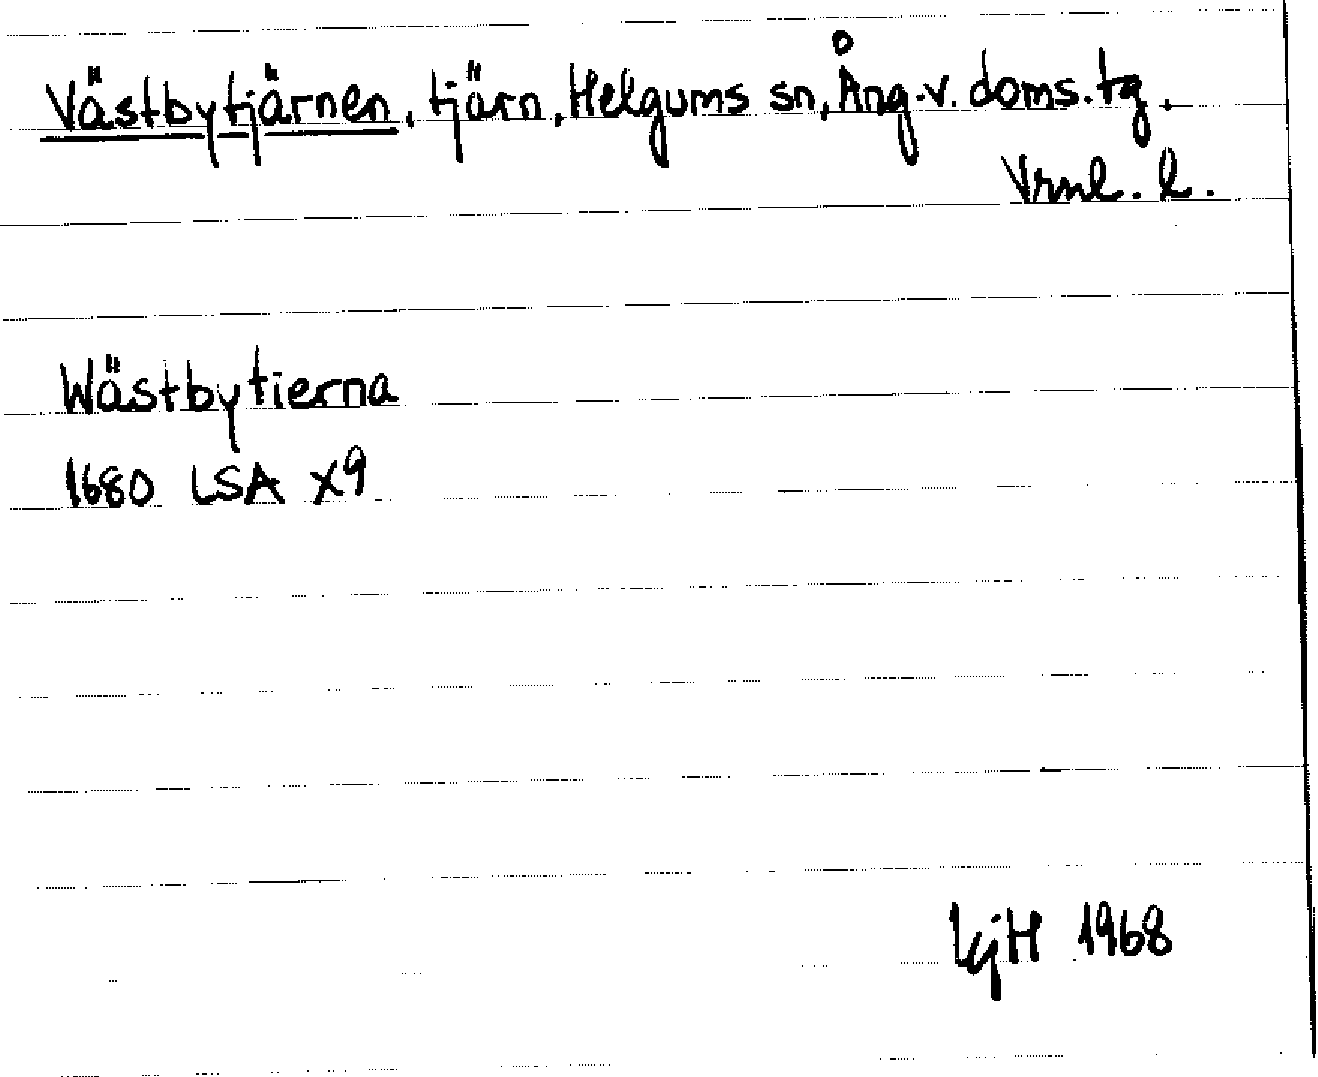 Västbytjärnen, tjärn, Helgums sn, Ång.v. doms.tg.
Vrnl. l.
Wästbytierna
1680 LSA X9
KjH 1968